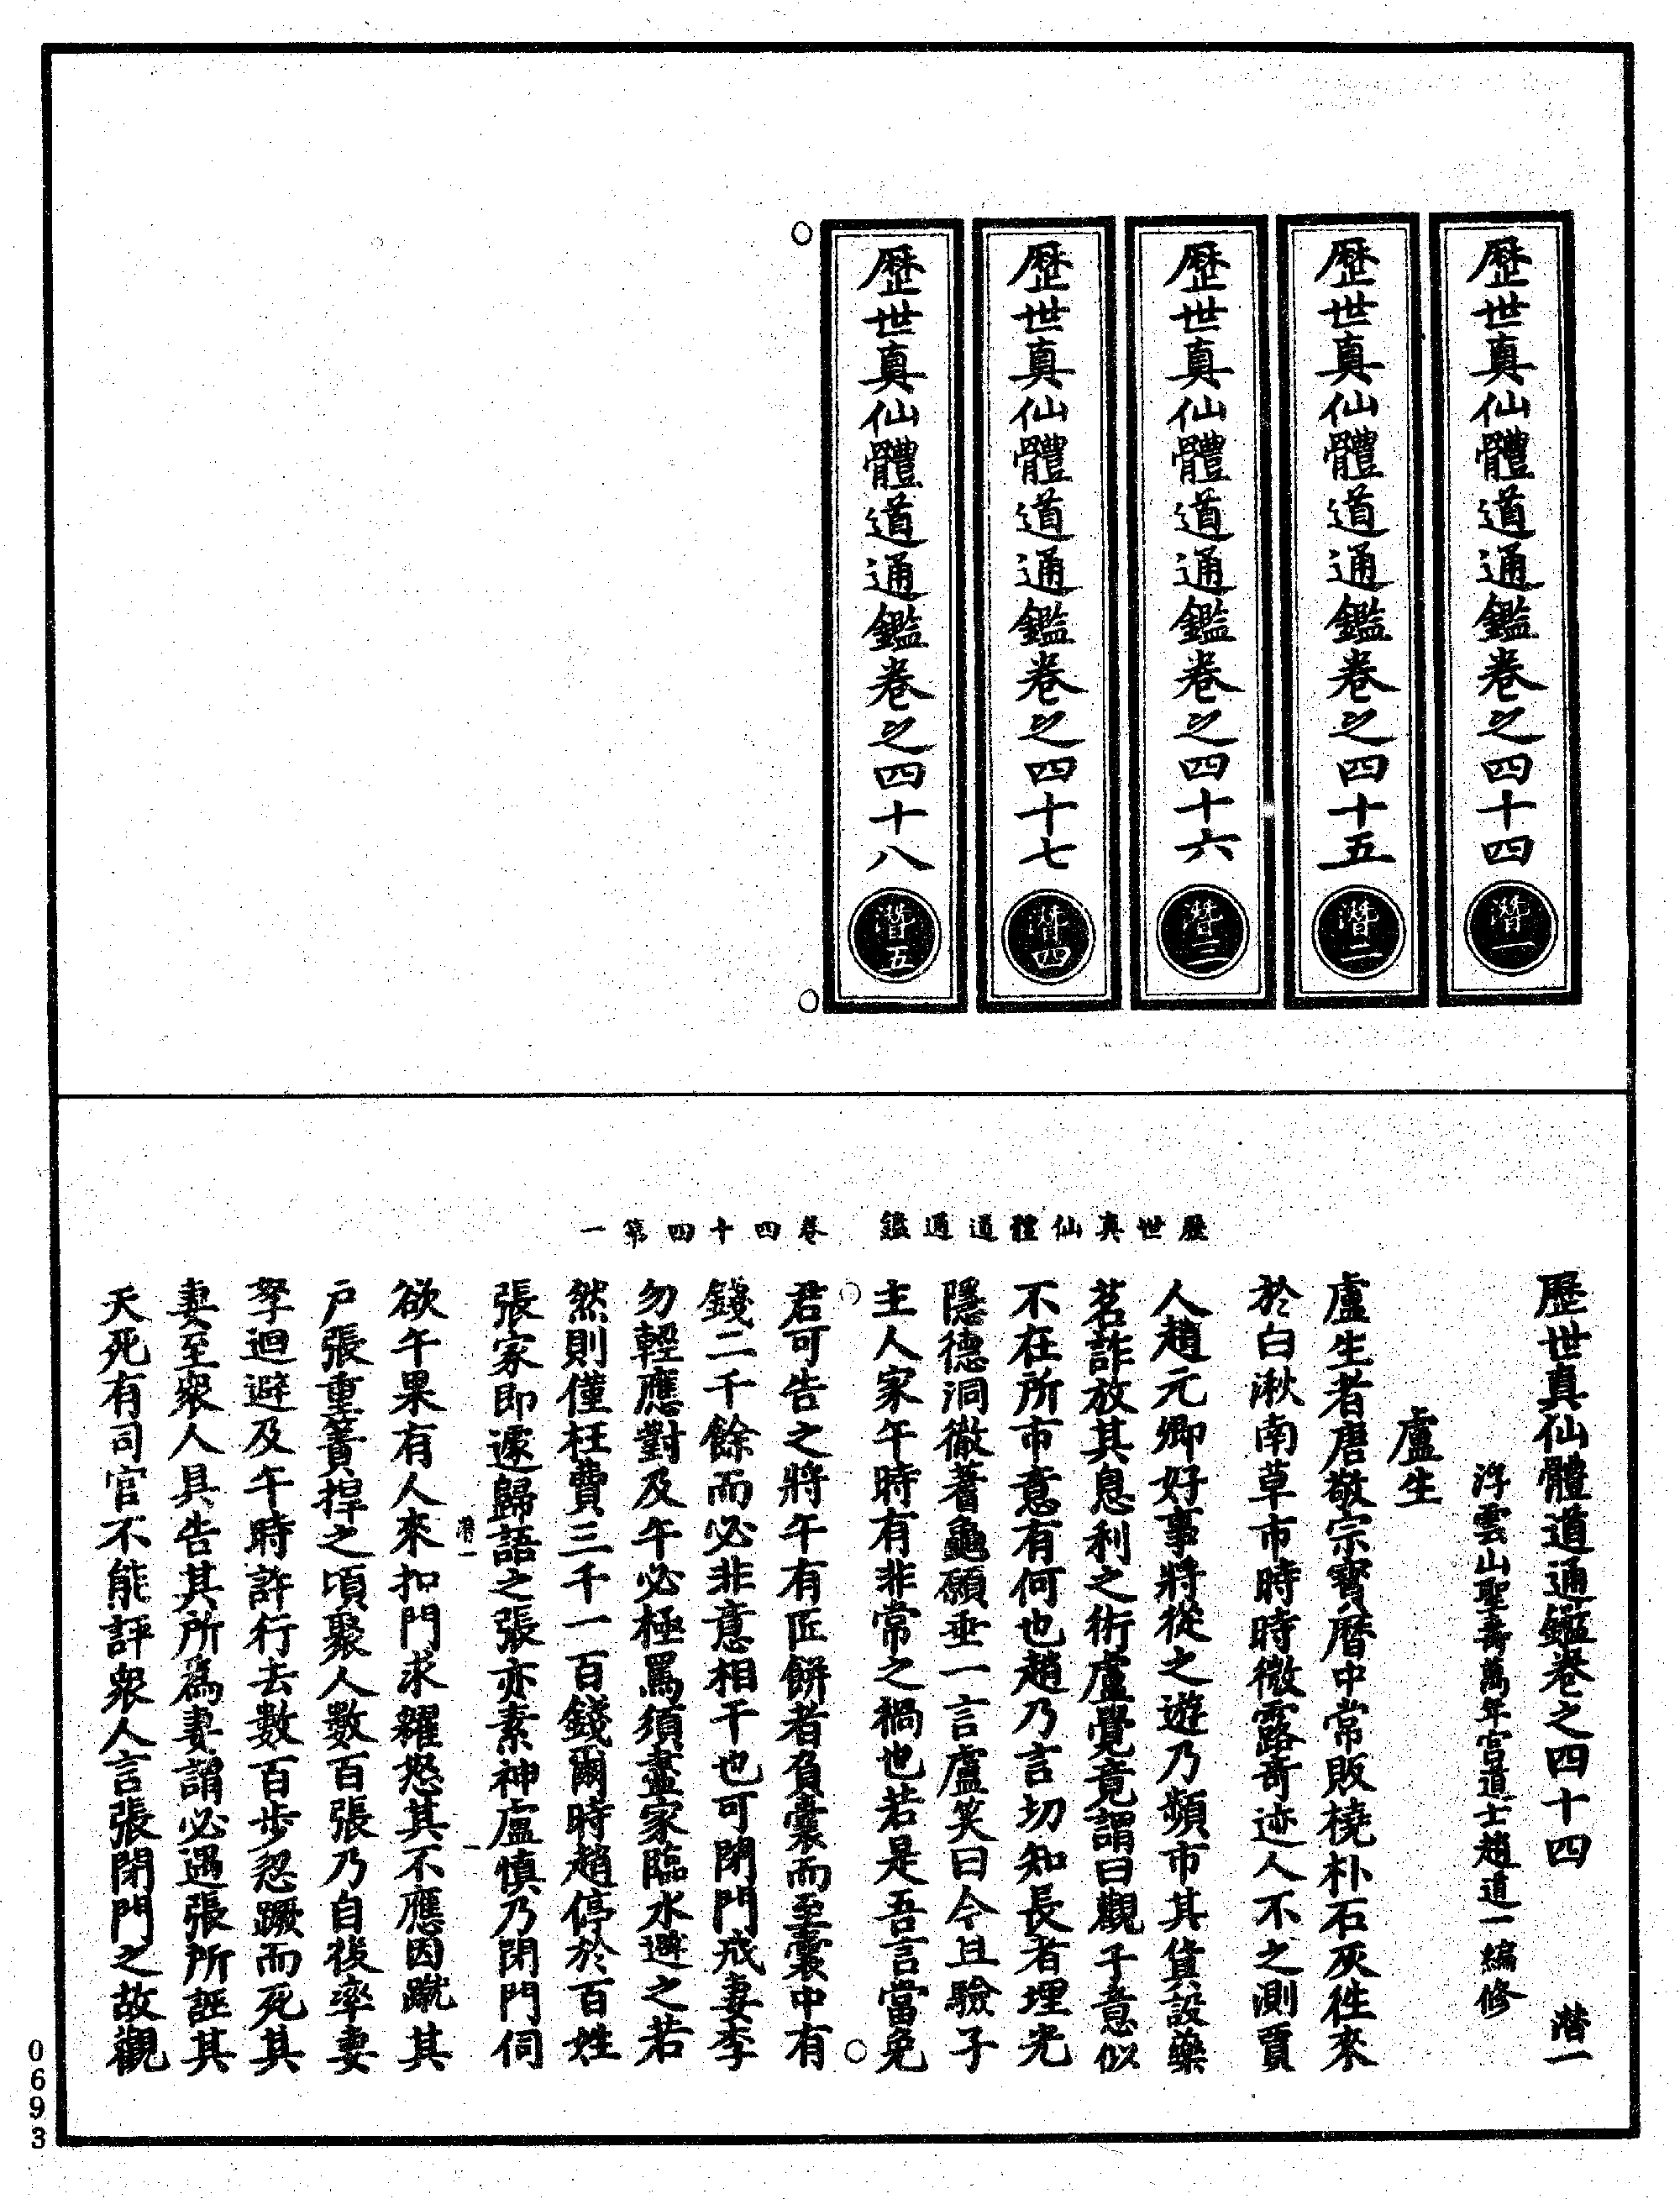 歷世真仙體道通鑑卷之四十四 潛一
歷世真仙體道通鑑卷之四十五 潛二
歷世真仙體道通鑑卷之四十六 潛三
歷世真仙體道通鑑卷之四十七 潛四
歷世真仙體道通鑑卷之四十八 潛五
歷世真仙體道通鑑 卷四十四第一
歷世真仙體道通鑑卷之四十四 潛一
浮雲山聖壽萬年宮道士趙道一編修
盧生
盧生者唐敬宗寶曆中常販橈朴石灰徃來
於白湫南草市時時微露奇迹人不之測賈
人趙元卿好事將從之遊乃頻市其貨設藥
茗詐放其息利之術盧覺竟謂曰觀子意似
不在所市意有何也趙乃言切知長者埋光
隱德洞徹蓍龜願垂一言盧笑曰今且驗子
主人家午時有非常之禍也若是吾言當免
君可告之將午有匠餅者負囊而至囊中有
錢二千餘而必非意相干也可閉門戒妻李
勿輕應對及午必極罵須盡家臨水避之若
然則僅枉費三千一百錢爾時趙停於百姓
張家即遽歸語之張亦素神盧慎乃閉門伺
潛一
一
欲午果有人來扣門求糴怒其不應因蹴其
戶張重簣捍之頃聚人數百張乃自後率妻
孥迴避及午時許行去數百步忽蹶而死其
妻至衆人具告其所為妻謂必遇張所誑其
夭死有司官不能評衆人言張閉門之故觀
0693